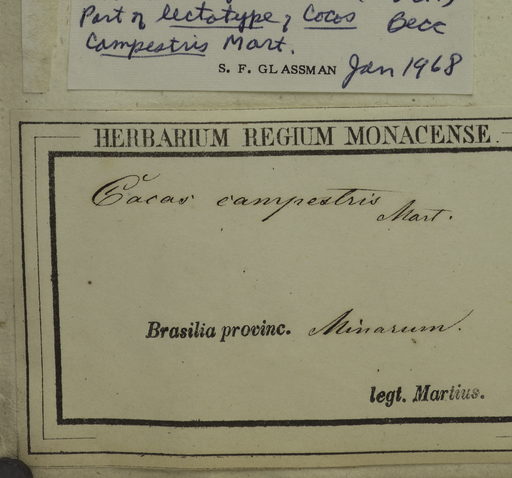 Part of lectotype of Cocos Becc
Campestris Mart.
S. F. GLASSMAN Jan 1968
HERBARIUM REGIUM MONACENSE
Cocos campestris Mart.
Brasilia provinc. Minarum.
legt. Martius.